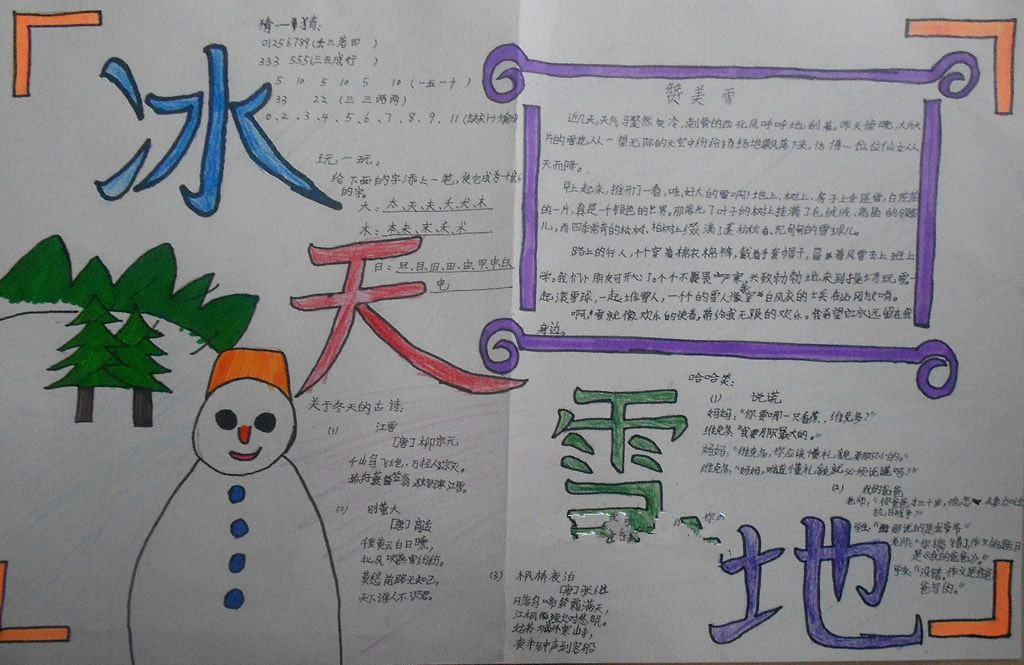 冰
天
雪
地
猜一猜:
01256789(去三落四 )
333 555(三五成行 )
5 10 5 10 5 10 (一五一十 )
33 22 (三三两两)
0、2、3、4、5、6、7、8、9、11
玩一玩:
给下面的字添上一笔,使它成为
的字。
大:太、天、夫、犬、木
木:本、未、末、禾、术
日:旦、目、旧、田、由、甲、申、白、
电
关于冬天的古诗:
(1) 江雪
[唐]柳宗元
千山鸟飞绝,万径人踪灭。
孤舟蓑笠翁,独钓寒江雪。
(2) 别董大
[唐]高适
里黄云白日曛,
北风吹雁雪纷纷。
莫愁前路无知己,
天下谁人不识君。
(3) 枫桥夜泊
[唐]张继
月落乌啼霜满天,
江枫渔火对愁眠。
姑苏城外寒山寺,
夜半钟声到客船
赞美雪
近几天,天气骤然变冷,刺骨的西北风呼呼地刮着。昨天傍晚,大片大
片的雪花从一望无际的天空中纷纷扬扬地飘落下来,仿佛一位位仙女从
天而降。
早上起来,推开门一看,哇,好大的雪啊!地上、树上、房子上全是雪,白茫茫
的一片,真是一个银色的世界。那落光了叶子的树上挂满了毛绒绒、亮晶的银条
儿,而四季常青的松树、柏树上,堆满了蓬松松、沉甸甸的雪球儿。
路上的行人,个个穿着棉衣棉裤,戴着手套帽子,冒着风雪去上班上
学。我们小朋友可开心了。个个不畏严寒,兴致勃勃地来到操场玩雪
起滚雪球,一起堆雪人,一个个的雪人像穿白风衣的士兵在站岗放哨。
啊!雪就像欢乐的使者,带给我无限的欢乐。我希望它永远留在我
身边。
哈哈笑:
(1) 说谎
妈妈:“你要哪一只香蕉,维克多?”
维克多:“我要那只最大的。”
妈妈:“维克多,你应该懂礼貌,要那只小的。”
维克多:“妈妈,难道懂礼貌就必须说谎吗?”
(2) 我的爸爸
老师:“你爸爸才三十岁,他怎
抗日战争?”
学生:“那说的是我爷爷”
老师:“你搞错了,作文的题目
是《我的爸爸》。”
学生:“没错。作文是我爸
爸写的。”